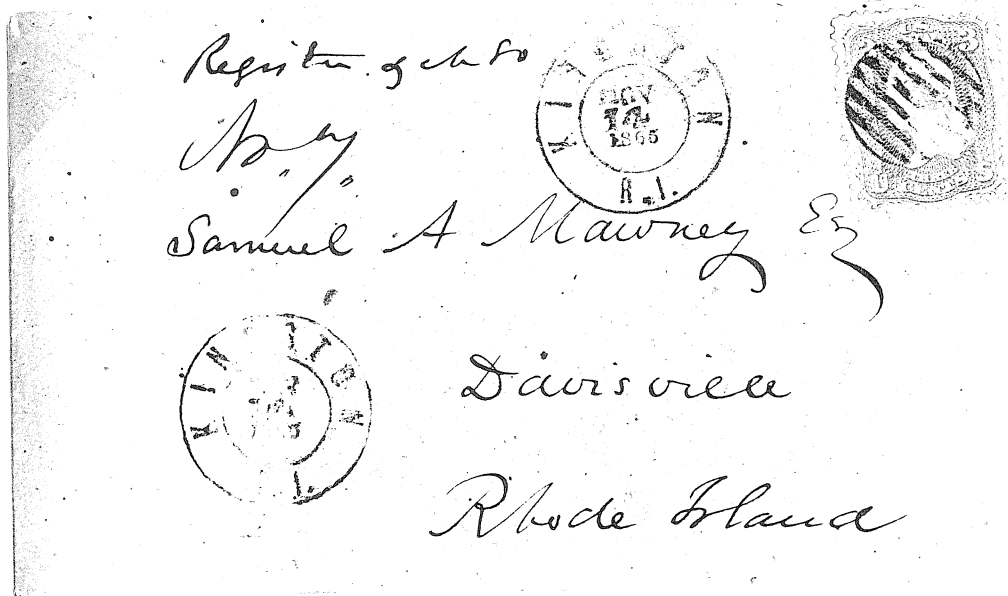 Register of
KINGSTON
NOV
14
1865
R.I.
3 3
U S
Samuel A Mawney Esq
KINGSTON
I.
Davisville
Rhode Island